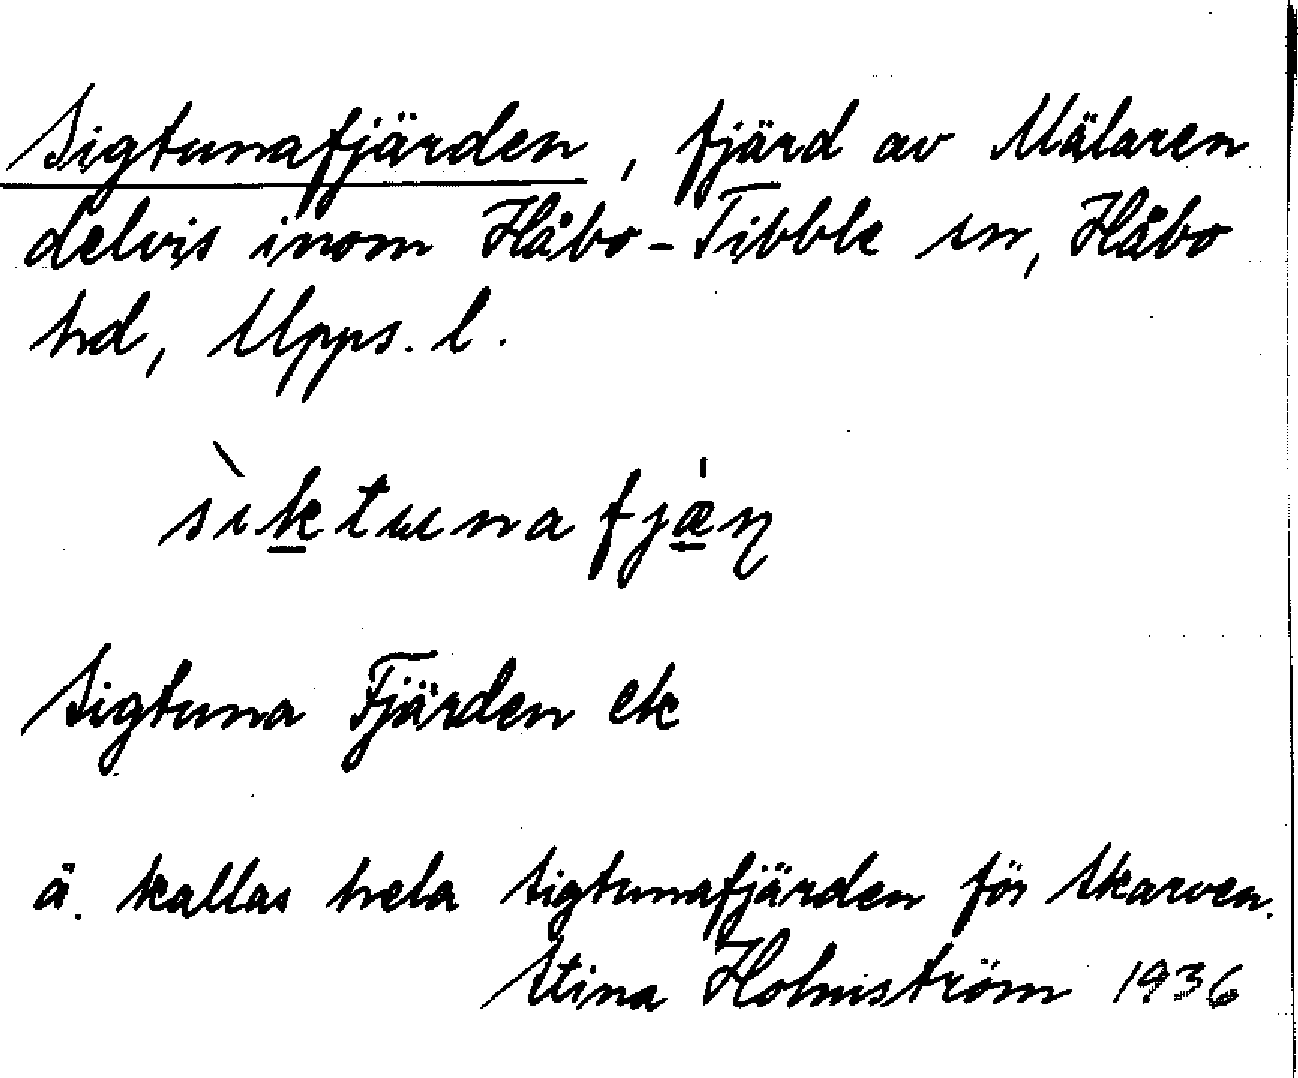 Sigtunafjärden, fjärd av Mälaren
delvis inom Håbo-Tibble sn, Håbo
hd, Upps. l.
sìktuna fjæ̲ɳ
Sigtuna Fjärden ek
ä. kallas hela Sigtunafjärden för Skarven.
Stina Holmström 1936